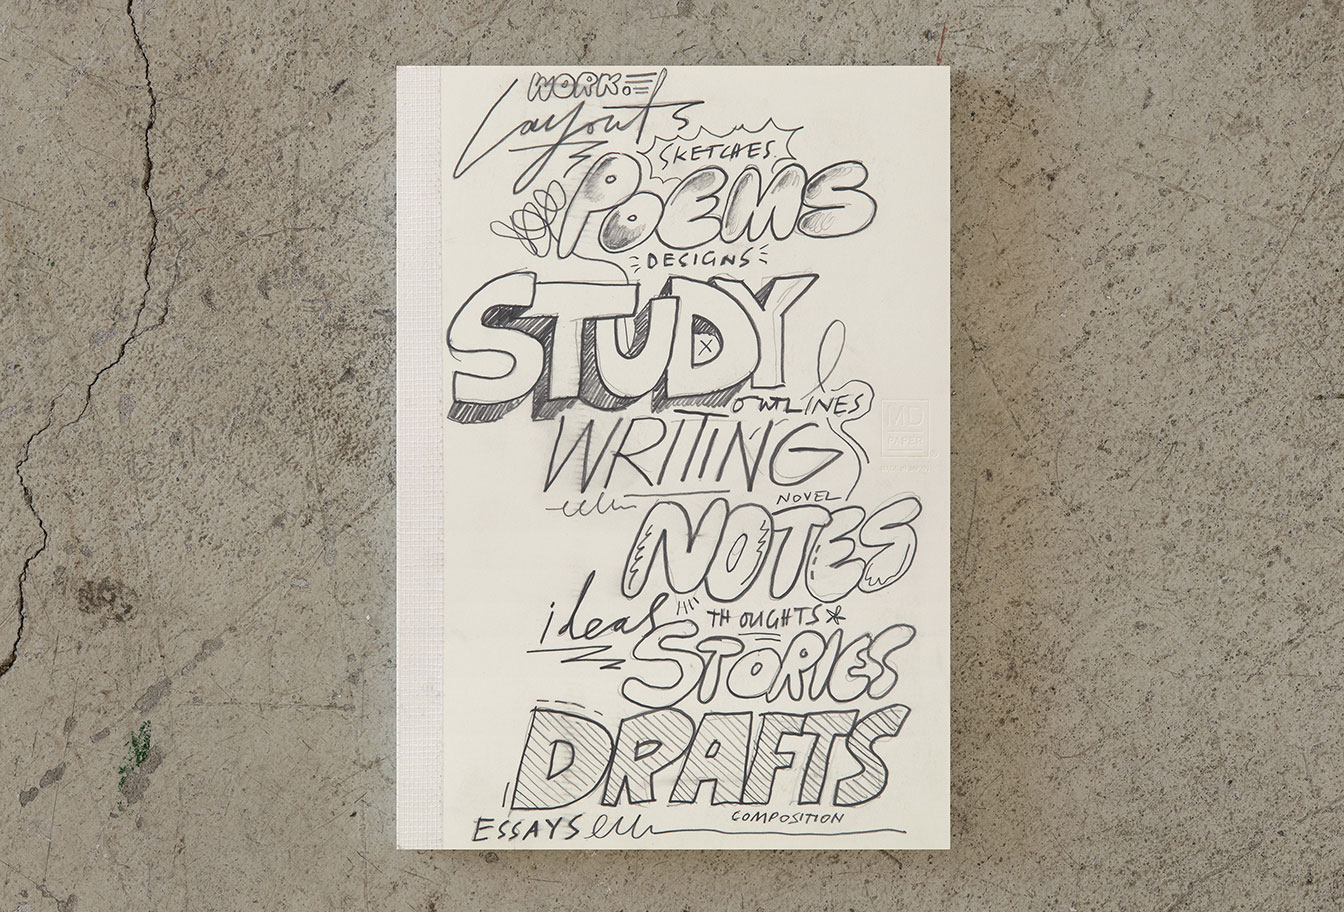 WORK
Layouts
SKETCHES
POEMS
DESIGNS
STUDY
OUTLINES
WRITING
NOVEL
NOTES
ideas
THOUGHTS*
STORIES
DRAFTS
COMPOSITION
ESSAYS
MD
PAPER